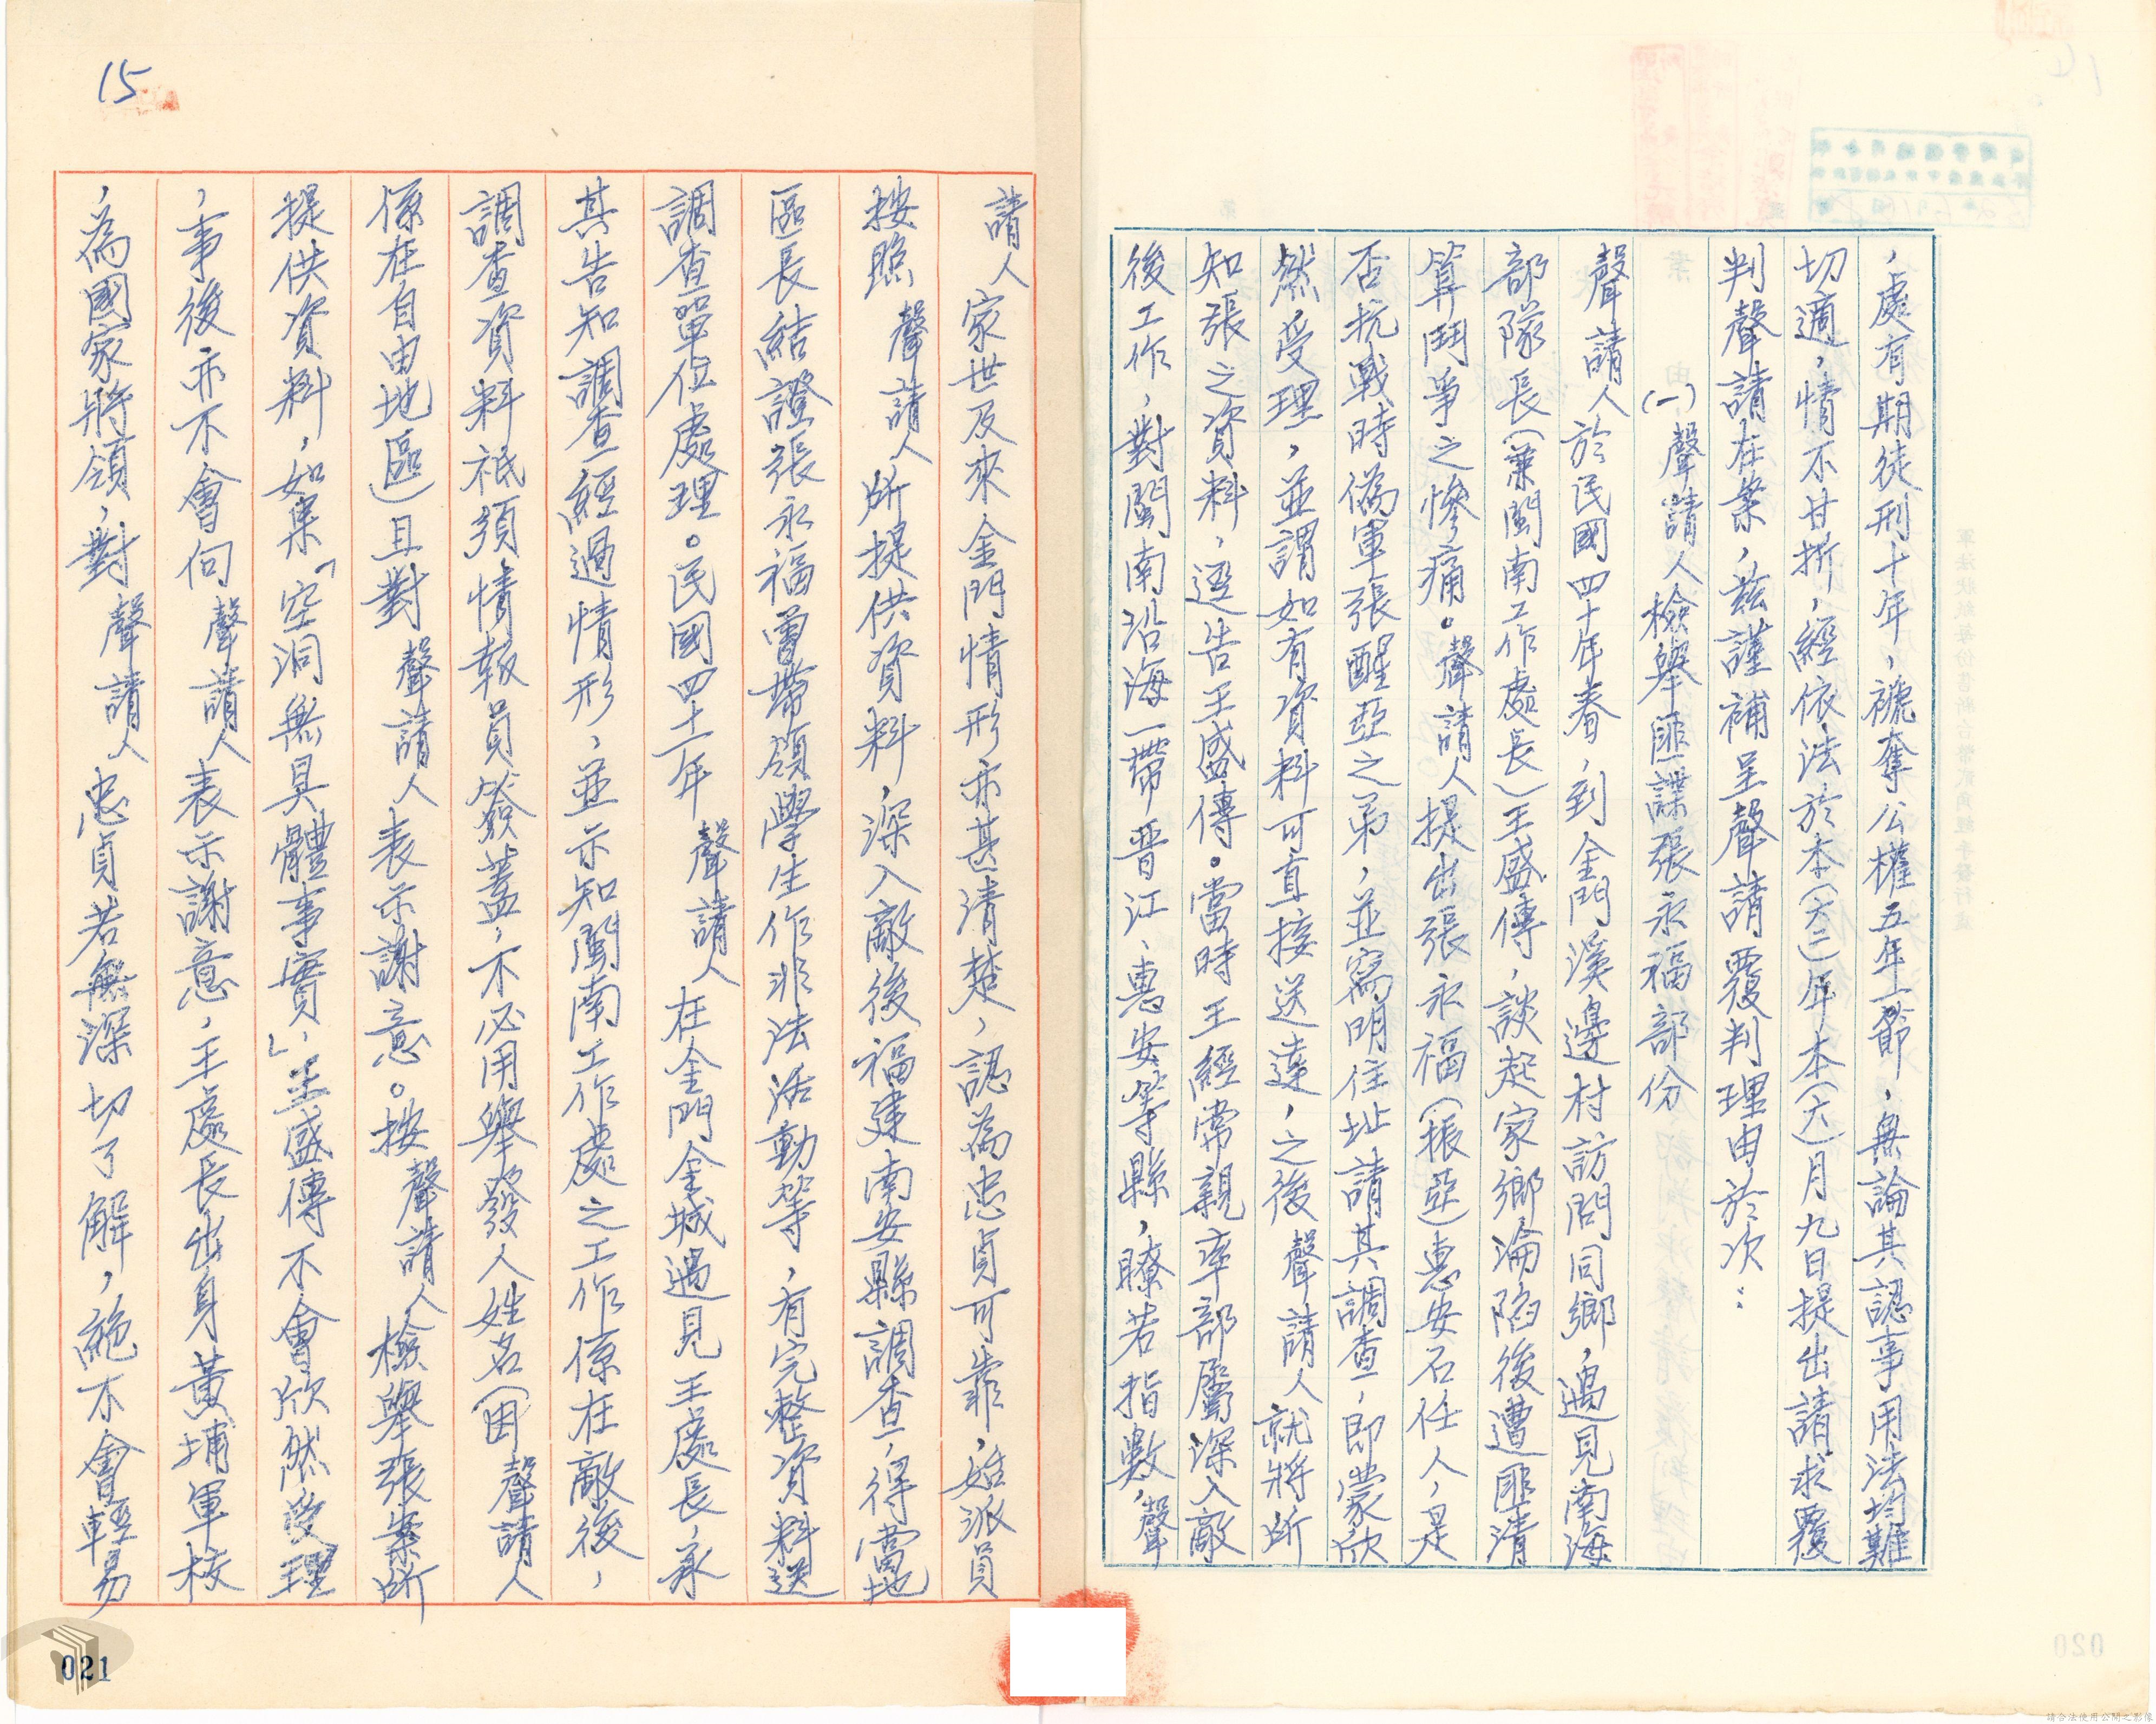 ，處有期徒刑十年，褫奪公權五年一節，無論其認事用法均難
切適，情不甘折，經依法於本(六二)年本(六)月九日提出請求覆
判聲請在案，茲謹補呈聲請覆判理由於次：
(一)聲請人檢舉匪諜張永福部份
聲請人於民國四十年春，到金門溪邊村訪問同鄉，遇見南海
部隊長(兼閩南工作處長)王盛傳，談起家鄉淪陷後遭匪清
算鬥爭之慘痛。聲請人提出張永福(振亞)惠安石任人，是
否抗戰時偽軍張醒亞之弟，並寫明住址請其調查，即蒙欣
然受理，並謂如有資料可直接送達，之後聲請人就將所
知張之資料，逕告王盛傳。當時王經常親率部屬深入敵
後工作，對閩南沿海一帶晋江、惠安等縣，瞭若指數，聲
請人家世及來金門情形亦甚清楚，認為忠貞可靠，始派員
按照聲請人所提供資料，深入敵後福建南安縣調查，得當地
區長結證張永福曾帶領學生作非法活動等，有完整資料送
調查單位處理。民國四十二年聲請人在金門金城遇見王處長，承
其告知調查經過情形，並示知閩南工作處之工作係在敵後，
調查資料祇須情報員簽蓋，不必用舉發人姓名(因聲請人
係在自由地區)且對聲請人表示謝意。按聲請人檢舉張案所
提供資料，如果「空洞無具體事實」，王盛傳不會欣然受理
，事後亦不會向聲請人表示謝意，王處長出身黃埔軍校
，為國家將領，對聲請人忠貞若無深切了解，絕不會輕易
15
021
請合法使用公開之影像